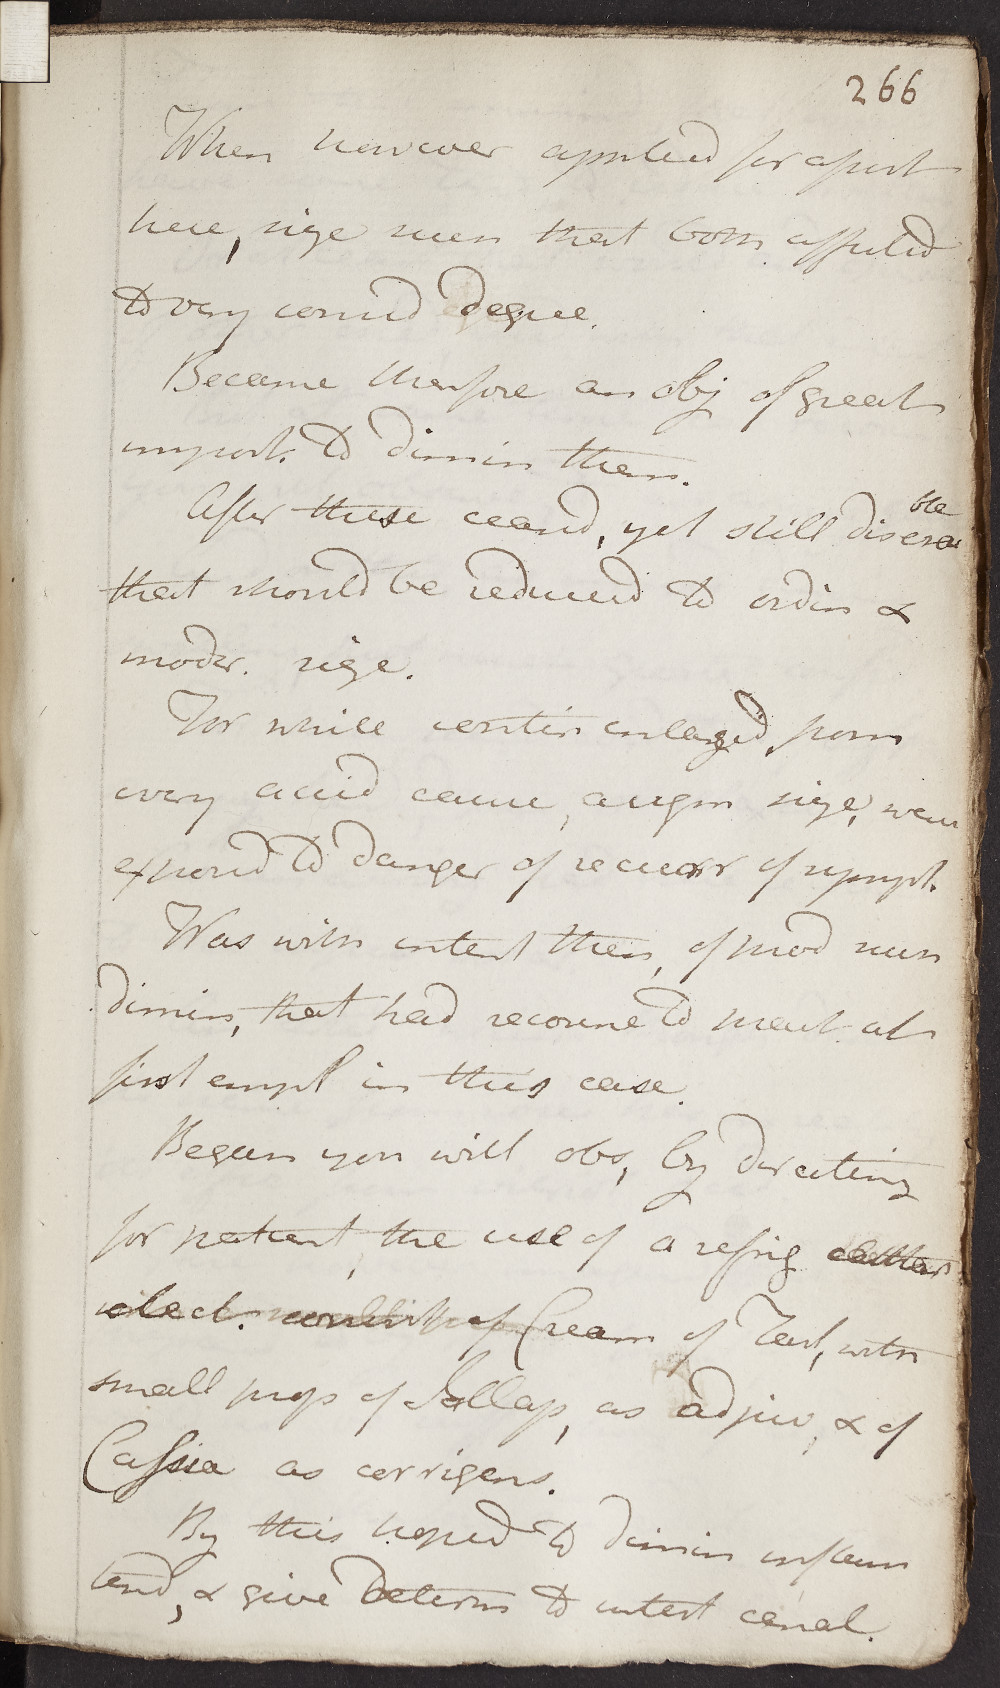 266
When however applied for assist
here, size even that both affected
to very consid degree.
Became therfore an obj of great
import. to dimin them.
After these ceased, yet still disera
ble
that should be reduced to ordin &
moder. size.
For while contin enlarged, from
every accid cause, augm size, were
exposed to danger of recurr of sympt.
Was with intent then, of prod such
dimin, that had recourse to treat. at
first empl in this case.
Began you will obs, by directing
for patient, the use of a refrig
elect. consisting of Cream of Tart, with
small prop of Jallap, as adjuv, & of
Cassia as corrigens.
By this hoped to dimin inflam
tend, & give determ to intest canal.